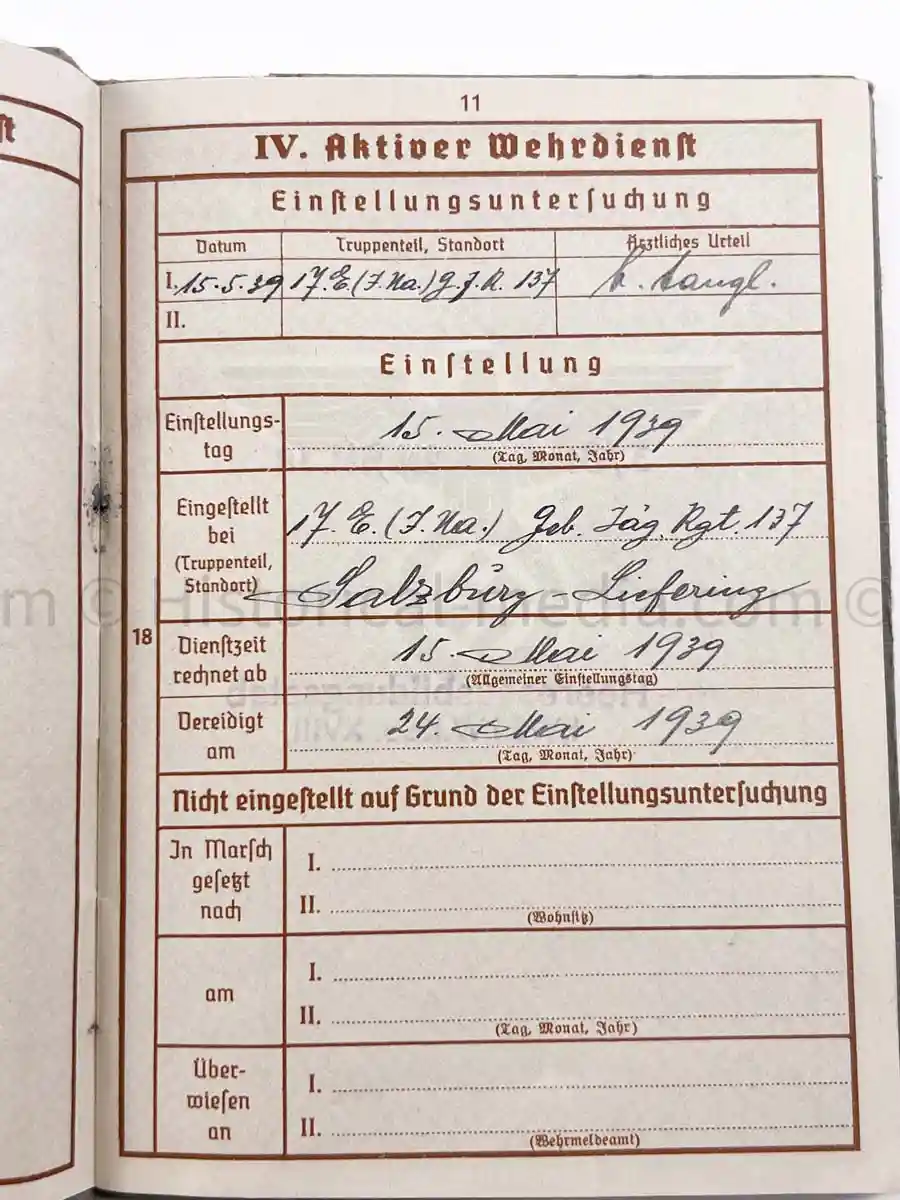 st
11
IV. Aktiver Wehrdienst
Einstellungsuntersuchung
Datum Truppenteil, Standort Ärztliches Urteil
I. 15.5.39 17. E. (J. Na.) G. J. R. 137 tangl.
II.
Einstellung
Einstellungs-
tag
15. Mai 1939
(Tag, Monat, Jahr)
Eingestellt
bei
(Truppenteil,
Standort)
17. E. (J. Na.) Geb. Jäg. Rgt. 137
Salzburg - Liefering
m © Historical-Media.com ©
18
Dienstzeit
rechnet ab
15. Mai 1939
(Allgemeiner Einstellungstag)
Vereidigt
am
24. Mai 1939
(Tag, Monat, Jahr)
Nicht eingestellt auf Grund der Einstellungsuntersuchung
In Marsch
gesetzt
nach
I.
II.
(Wohnsitz)
am
I.
II.
(Tag, Monat, Jahr)
Über-
wiesen
an
I.
II.
(Wehrmeldeamt)